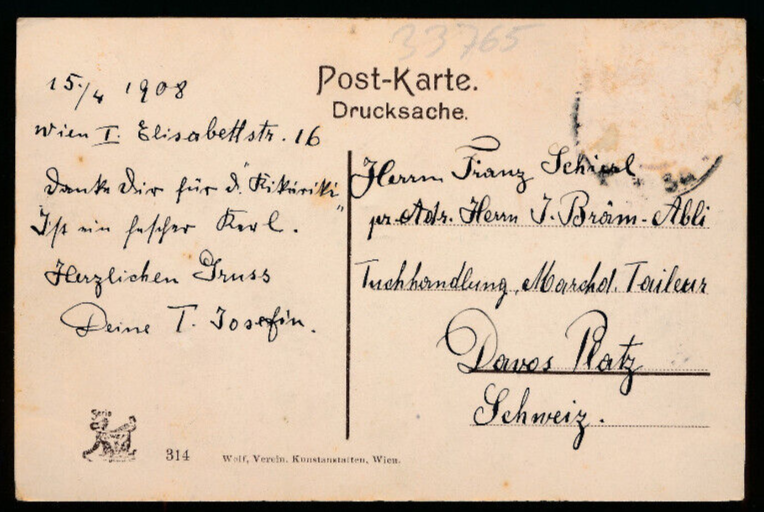 33765
Post-Karte.
Drucksache.
15./4 1908
Wien I. Elisabethstr. 16
Danke Dir für d. "Kikeriki"
Ist ein fescher Kerl.
Herzlichen Gruss
Deine T. Josefin.
Herrn Franz Schierl
pr. Adr. Herrn J. Bräm-Abli
Tuchhandlung, Marchd. Tailleur
Davos Platz
Schweiz.
Serie
314
Wolf, Verein. Kunstanstalten, Wien.